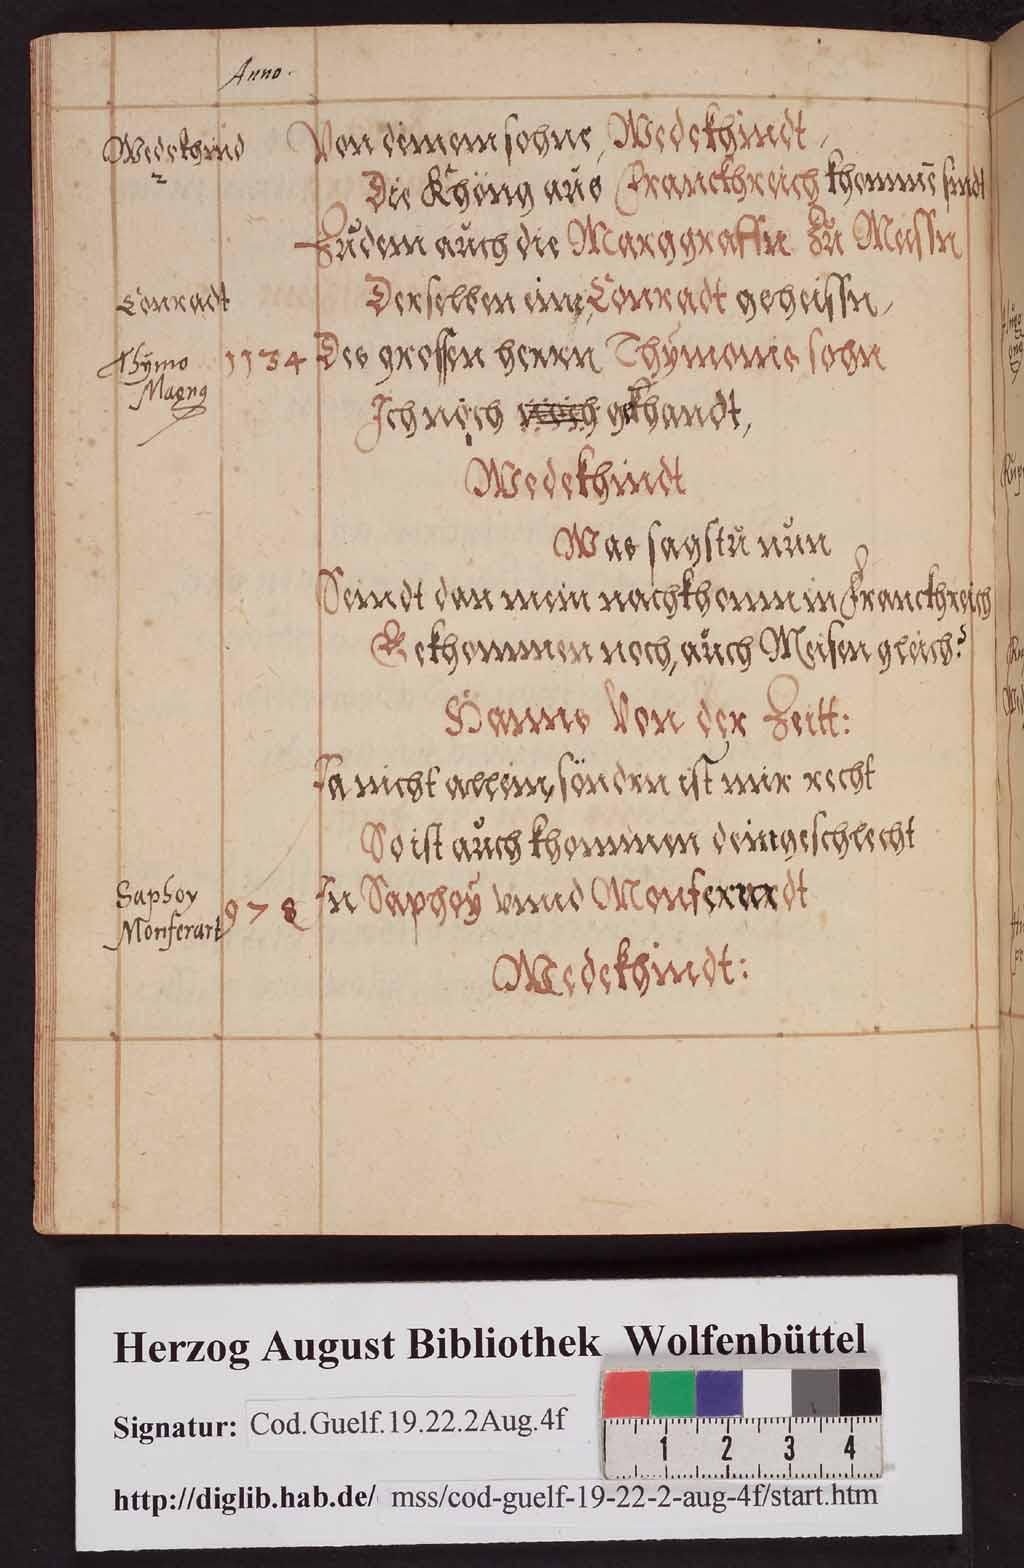 Anno.
Wedekhind
2
Von deinem sohne, Wedekhindt,
Die Khöng aůs Franckhreich khommē sindt
Zůdem aůch die Marggraffn Zů Meissn
Conradt
Derselben ein, Conradt geheissn,
Thÿmo
Magng
1134
Des grossen herrn Thÿmonis sohn
Ich noch gekhandt,
Wedekhindt
Was sagstů nůn
Seindt dan mein nachkhomn in Franckhreich
Bekhommen noch, aůch Meisen gleich?
Hanns Von der Zeitt:
Ja nicht allein, söndrn ist mir recht
So ist aůch khommen dein geschlecht
Saphoy
Monferart
978
In Saphoÿ vnnd Monferardt
Wedekhindt:
Herzog August Bibliothek Wolfenbüttel
Signatur: Cod.Guelf.19.22.2Aug.4f
http://diglib.hab.de/ mss/cod-guelf-19-22-2-aug-4f/start.htm
1 2 3 4